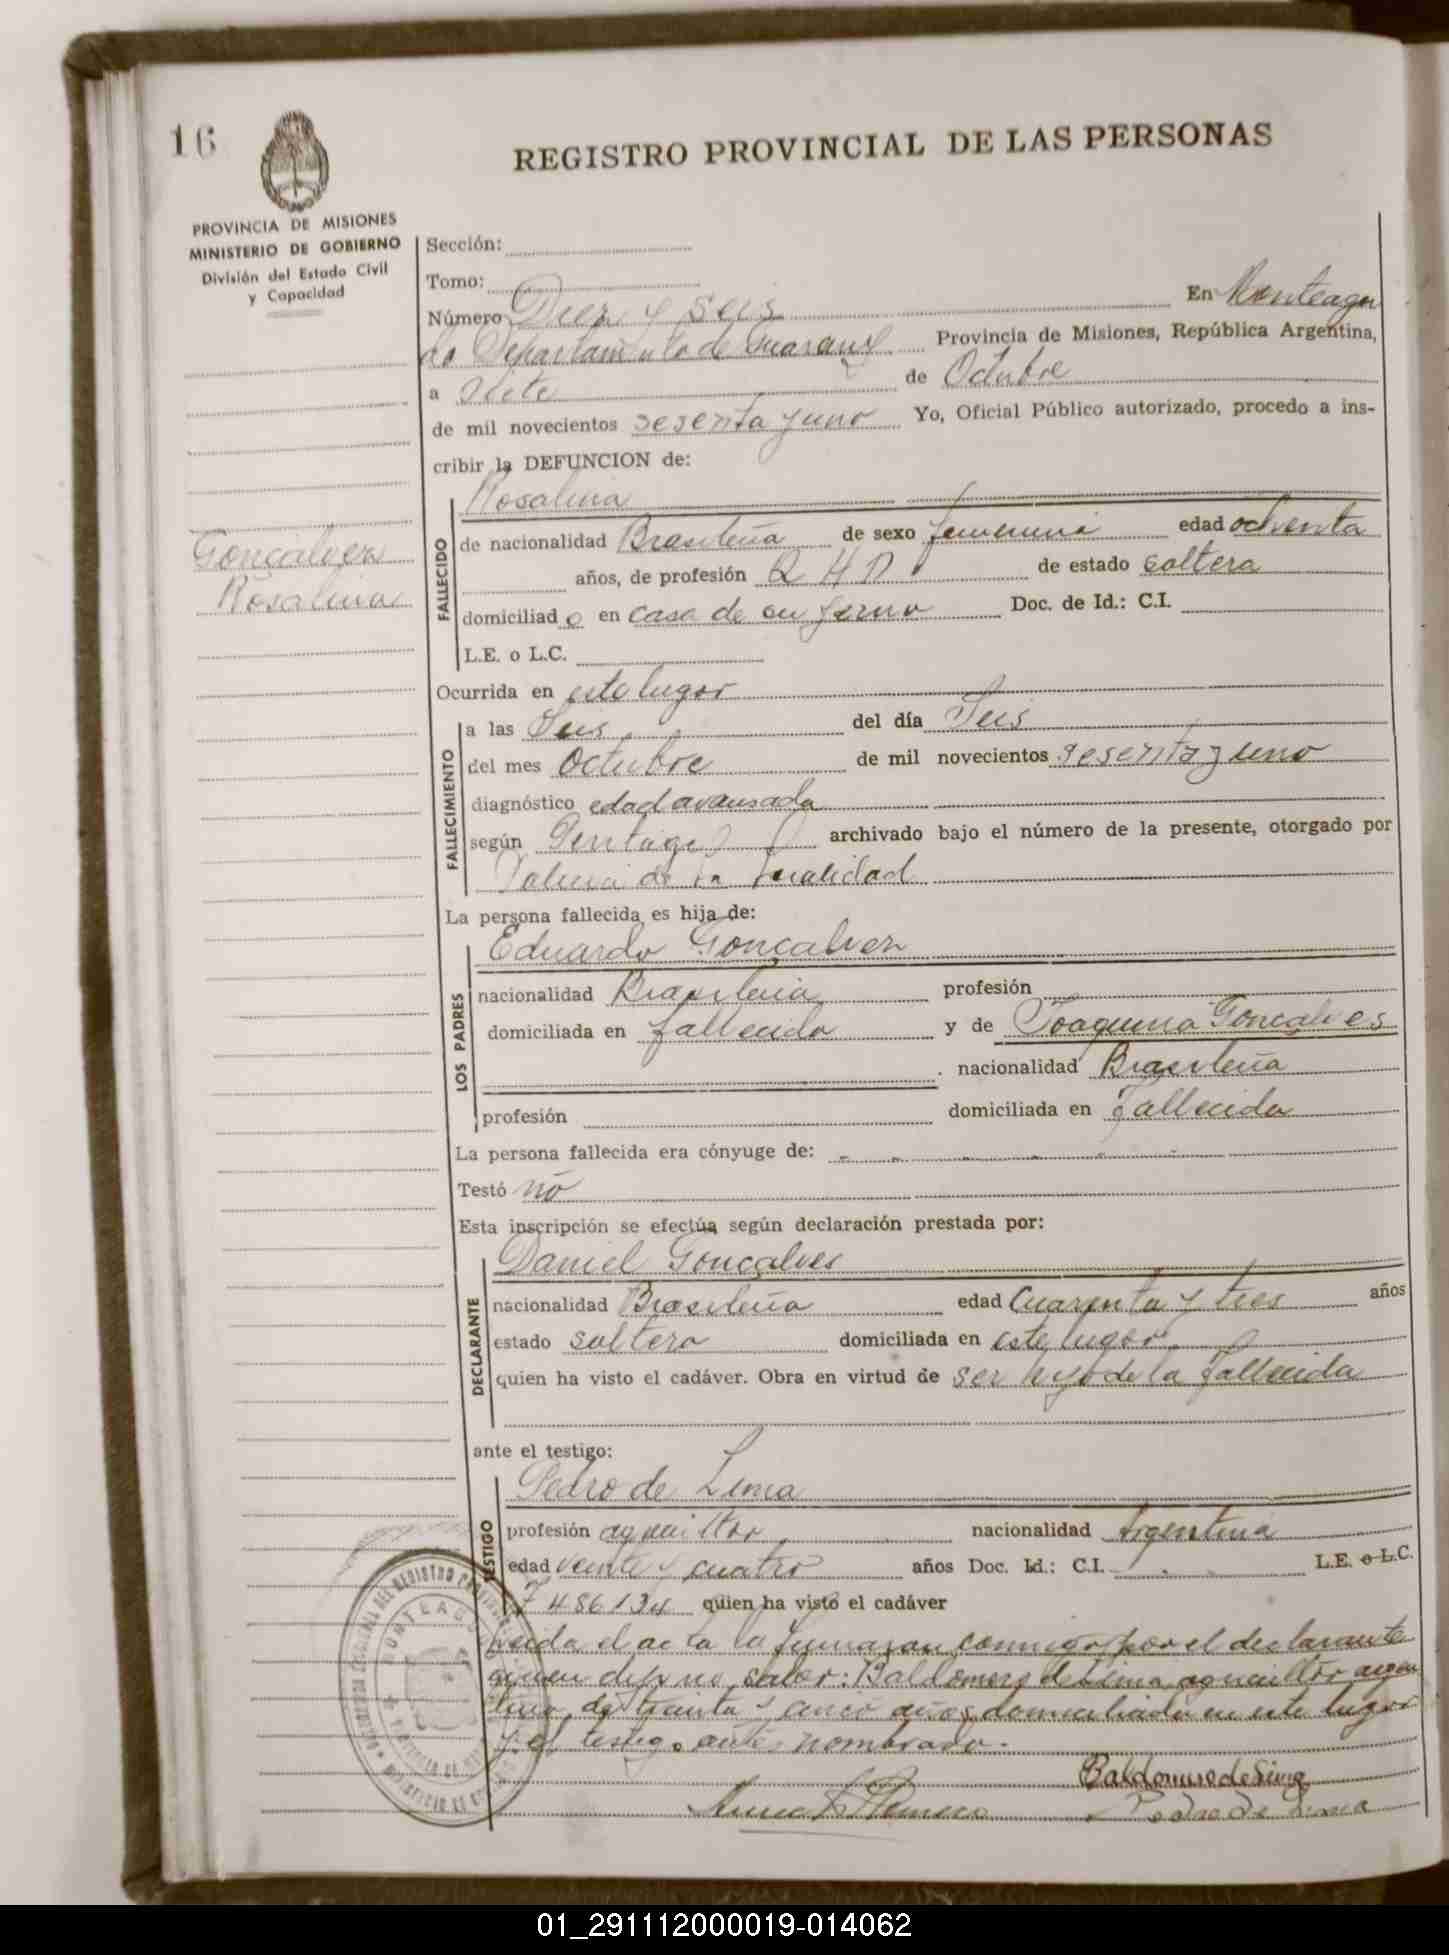 16
REGISTRO PROVINCIAL DE LAS PERSONAS
PROVINCIA DE MISIONES
MINISTERIO DE GOBIERNO
División del Estado Civil
y Capacidad
Sección:
Tomo:
Número Diez y seis En Monteagu
do Departamento de Guaraní Provincia de Misiones, República Argentina,
a Siete de Octubre
de mil novecientos sesenta y uno Yo, Oficial Público autorizado, procedo a ins-
cribir la DEFUNCION de:
Gonçalvez
Rosalina
FALLECIDO
Rosalina
de nacionalidad Brasileña de sexo femenino edad ochenta
años, de profesión Q H D de estado soltera
domiciliad o en casa de su yerno Doc. de Id.: C.I.
L.E. o L.C.
Ocurrida en este lugar
FALLECIMIENTO
a las Seis del día Seis
del mes Octubre de mil novecientos sesenta y uno
diagnóstico edad avansada
según archivado bajo el número de la presente, otorgado por
de la localidad
La persona fallecida es hija de:
LOS PADRES
Eduardo Gonçalvez
nacionalidad Brasileña profesión
domiciliada en fallecido y de Joaquina Gonçalves
nacionalidad Brasileña
profesión domiciliada en Fallecida
La persona fallecida era cónyuge de: - - - - - -
Testó no
Esta inscripción se efectúa según declaración prestada por:
DECLARANTE
Daniel Gonçalves
nacionalidad Brasileña edad Cuarenta y tres años
estado soltero domiciliada en este lugar
quien ha visto el cadáver. Obra en virtud de ser hijo de la fallecida
ante el testigo:
TESTIGO
Pedro de Lima
profesión agricultor nacionalidad Argentina
edad veinte y cuatro años Doc. Id.: C.I. L.E. o L.C.
7486134 quien ha visto el cadáver
Leida el acta la firmaran conmigo por el declarante
quien dijo no saber: Baldomero de Lima agricultor argen
tino de treinta y cinco años domiciliado en este lugar
y el testigo antes nombrado.
Baldomero de Lima
Pedro de Lima
MONTEAGUDO
01_291112000019-014062